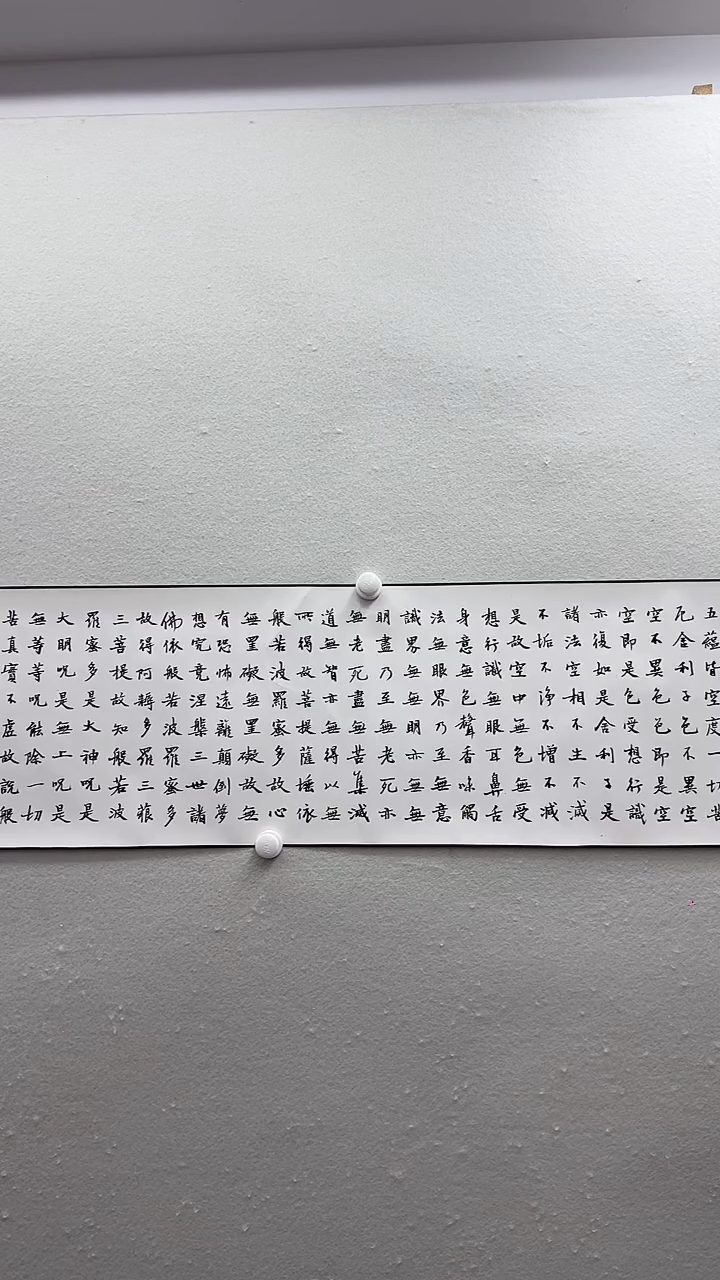 五蘊皆空度一切苦
厄舍利子色不異空
空不異色色即是空
空即是色受想行識
亦復如是舍利子是
諸法空相不生不滅
不垢不淨不增不减
是故空中無色無受
想行識無眼耳鼻舌
身意無色聲香味觸
法無眼界乃至無意
識界無無明亦無無
明盡乃至無老死亦
無老死盡無苦集滅
道無智亦無得以無
所得故菩提薩埵依
般若波羅蜜多故心
無罣礙無罣礙故無
有恐怖遠離顛倒夢
想究竟涅槃三世諸
佛依般若波羅蜜多
故得阿耨多羅三藐
三菩提故知般若波
羅蜜多是大神咒是
大明咒是無上咒是
無等等咒能除一切
苦真實不虛故說般